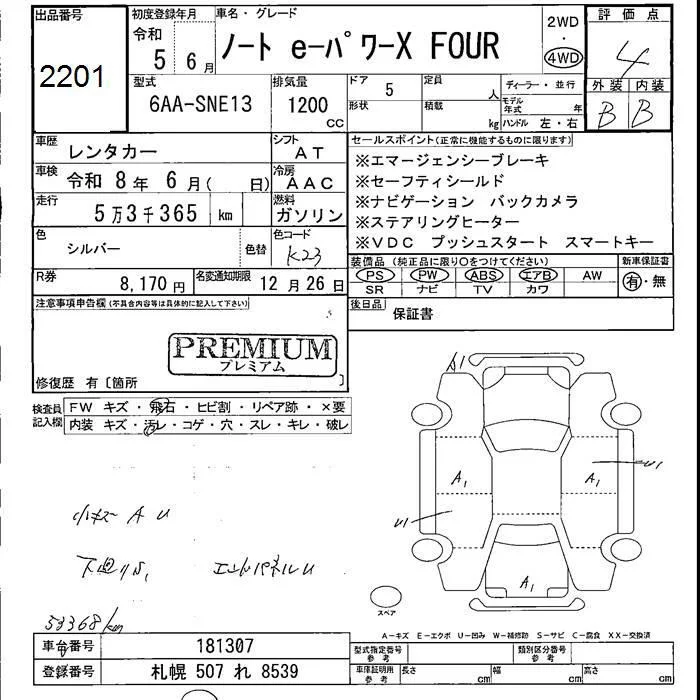 出品番号 初度登録年月 車名・グレード 評価点
2201 令和 5 6月 ノート e-パワーX FOUR 2WD・4WD 4
型式 排気量 ドア 定員 ディーラー・並行 外装 内装
6AA-SNE13 1200 CC 5 人 B B
形状 積載 kg モデル年式 年 ハンドル 左・右
車歴 レンタカー シフト AT セールスポイント(正常に機能するものに限ります)
車検 令和 8年 6月( 日) 冷房 AAC ※エマージェンシーブレーキ
※セーフティシールド
走行 5万3千365 km 燃料 ガソリン ※ナビゲーション バックカメラ
※ステアリングヒーター
色 シルバー 色替 色コード K23 ※VDC プッシュスタート スマートキー
R券 8,170円 名変通知期限 12月26日 装備品(純正品に限り○をつけてください) 新車保証書
PS PW ABS エアB AW 有・無
SR ナビ TV カワ
注意事項申告欄(不具合内容等は具体的に記入して下さい) 後日品 保証書
PREMIUM
プレミアム
修復歴 有〔箇所 〕
検査員記入欄 FW キズ・飛石・ヒビ割・リペア跡・×要
内装 キズ・汚レ・コゲ・穴・スレ・キレ・破レ
A1
A1 A1 U1
U1
A1
小キズ A U
下回りS1 エンドパネルU
スペア
53368km
A-キズ E-エクボ U-凹み W-補修跡 S-サビ C-腐食 XX-交換済
車台番号 181307 型式指定番号 参考 類別区分番号 参考
登録番号 札幌 507 れ 8539 車庫証明用 参考 長さ cm 幅 cm 高さ cm